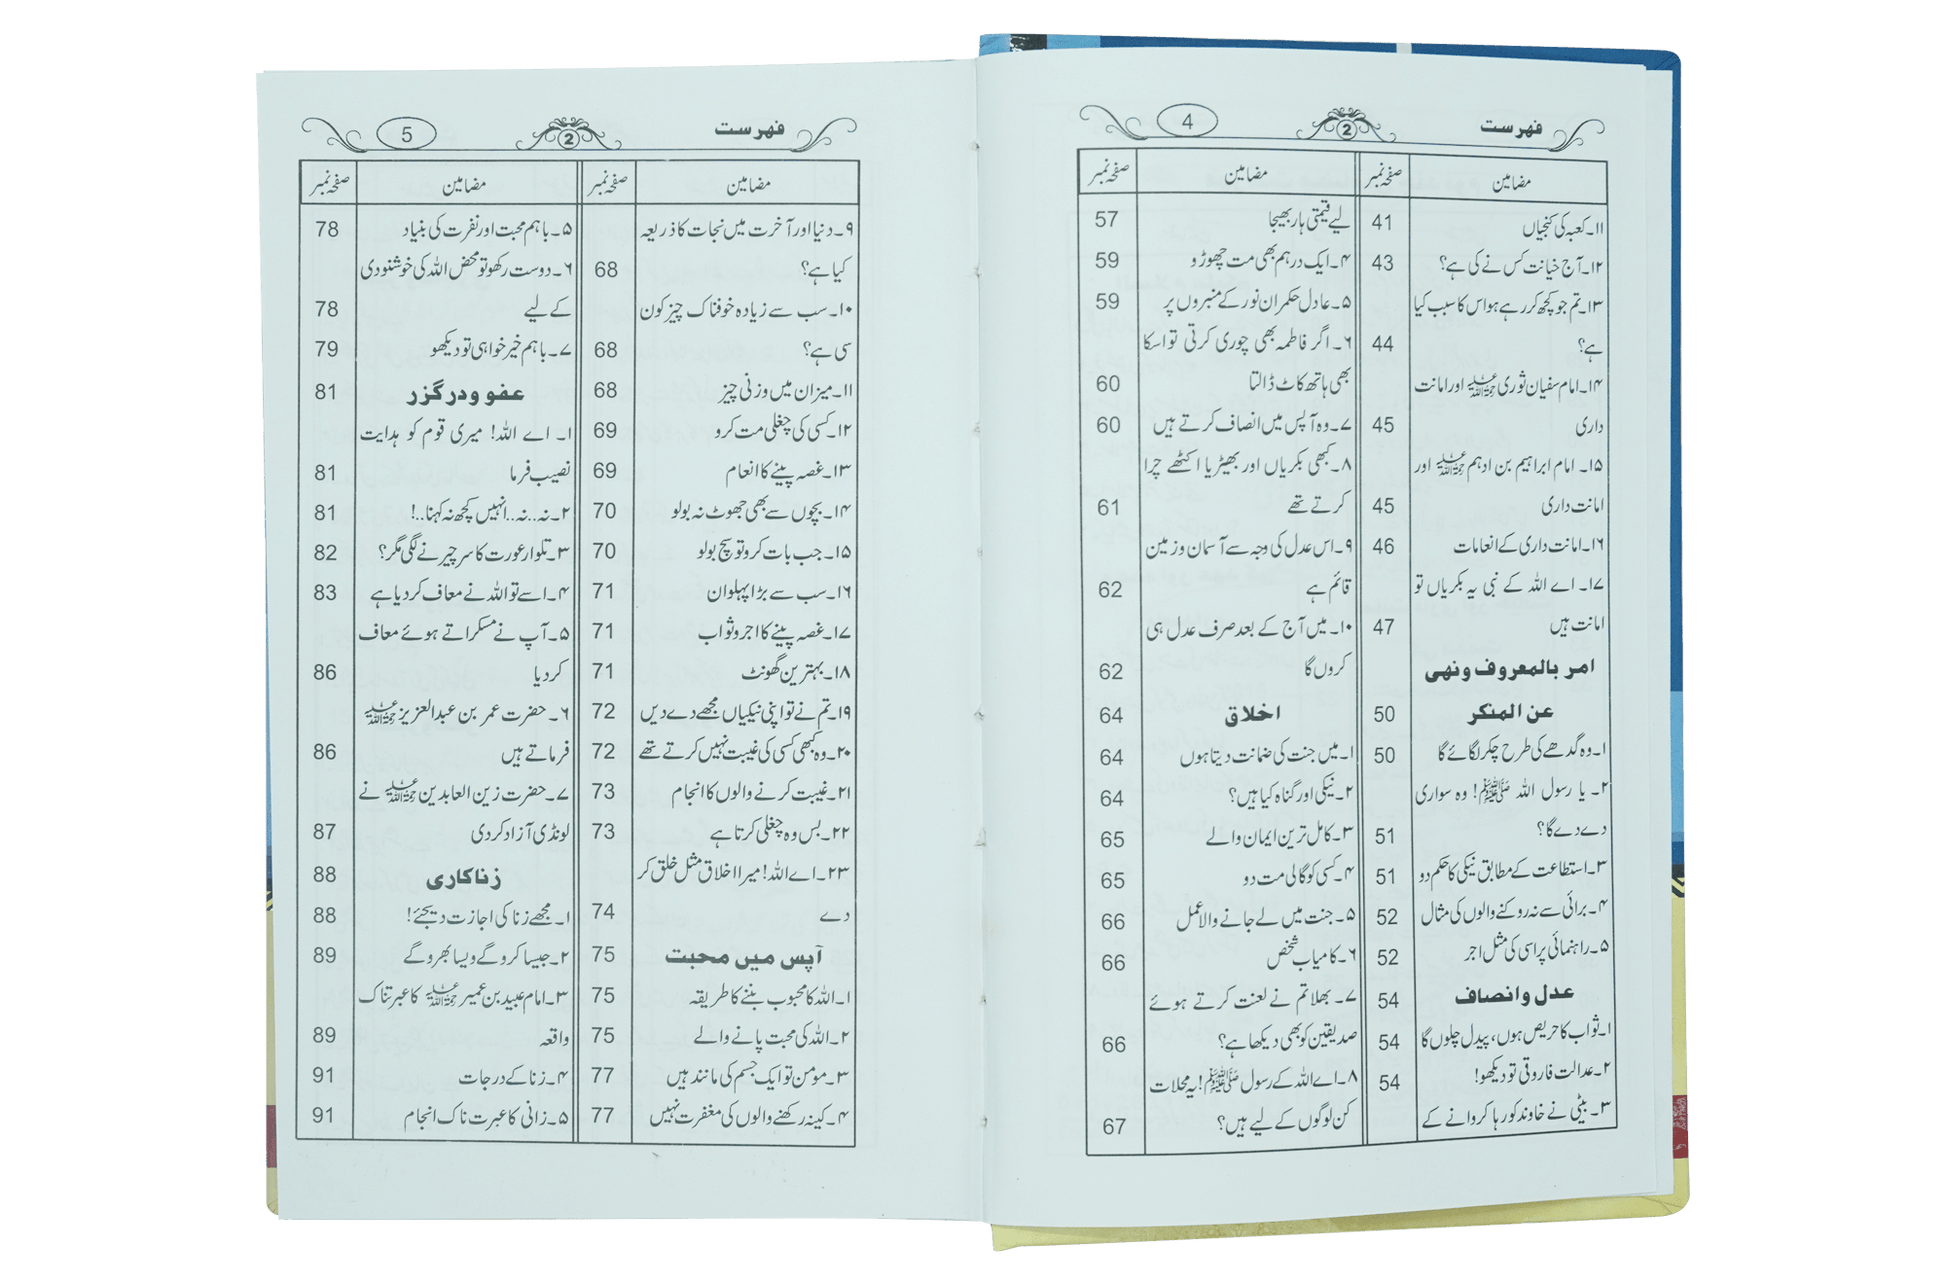 فہرست
2
4
مضامین صفحہ نمبر
۱۱۔ کعبہ کی کنجیاں 41
۱۲۔ آج خیانت کس نے کی ہے؟ 43
۱۳۔ تم جو کچھ کر رہے ہو اس کا سبب کیا
ہے؟ 44
۱۴۔ امام سفیان ثوری رحمۃ اللہ علیہ اور امانت
داری 45
۱۵۔ امام ابراہیم بن ادہم رحمۃ اللہ علیہ اور
امانت داری 45
۱۶۔ امانت داری کے انعامات 46
۱۷۔ اے اللہ کے نبی یہ بکریاں تو
امانت ہیں 47
امر بالمعروف ونہی
عن المنکر 50
۱۔ وہ گدھے کی طرح چکر لگائے گا 50
۲۔ یا رسول اللہ ﷺ! وہ سواری
دے دے گا؟ 51
۳۔ استطاعت کے مطابق نیکی کا حکم دو 51
۴۔ برائی سے نہ روکنے والوں کی مثال 52
۵۔ راہنمائی پر اسی کی مثل اجر 52
عدل وانصاف 54
۱۔ ثواب کا حریص ہوں، پیدل چلوں گا 54
۲۔ عدالت فاروقی تو دیکھو! 54
۳۔ بیٹی نے خاوند کو رہا کروانے کے
مضامین صفحہ نمبر
لیے قیمتی ہار بھیجا 57
۴۔ ایک درہم بھی مت چھوڑو 59
۵۔ عادل حکمران نور کے منبروں پر 59
۶۔ اگر فاطمہ بھی چوری کرتی تو اسکا
بھی ہاتھ کاٹ ڈالتا 60
۷۔ وہ آپس میں انصاف کرتے ہیں 60
۸۔ کبھی بکریاں اور بھیڑیا اکٹھے چرا
کرتے تھے 61
۹۔ اس عدل کی وجہ سے آسمان وزمین
قائم ہے 62
۱۰۔ میں آج کے بعد صرف عدل ہی
کروں گا 62
اخلاق 64
۱۔ میں جنت کی ضمانت دیتا ہوں 64
۲۔ نیکی اور گناہ کیا ہیں؟ 64
۳۔ کامل ترین ایمان والے 65
۴۔ کسی کو گالی مت دو 65
۵۔ جنت میں لے جانے والا عمل 66
۶۔ کامیاب شخص 66
۷۔ بھلا تم نے لعنت کرتے ہوئے
صدیقین کو بھی دیکھا ہے؟ 66
۸۔ اے اللہ کے رسول ﷺ! یہ محلات
کن لوگوں کے لیے ہیں؟ 67
فہرست
2
5
مضامین صفحہ نمبر
۹۔ دنیا اور آخرت میں نجات کا ذریعہ
کیا ہے؟ 68
۱۰۔ سب سے زیادہ خوفناک چیز کون
سی ہے؟ 68
۱۱۔ میزان میں وزنی چیز 68
۱۲۔ کسی کی چغلی مت کرو 69
۱۳۔ غصہ پینے کا انعام 69
۱۴۔ بچوں سے بھی جھوٹ نہ بولو 70
۱۵۔ جب بات کرو تو سچ بولو 70
۱۶۔ سب سے بڑا پہلوان 71
۱۷۔ غصہ پینے کا اجر و ثواب 71
۱۸۔ بہترین گھونٹ 71
۱۹۔ تم نے تو اپنی نیکیاں مجھے دے دیں 72
۲۰۔ وہ کبھی کسی کی غیبت نہیں کرتے تھے 72
۲۱۔ غیبت کرنے والوں کا انجام 73
۲۲۔ بس وہ چغلی کرتا ہے 73
۲۳۔ اے اللہ! میرا اخلاق مثل خلق کر
دے 74
آپس میں محبت 75
۱۔ اللہ کا محبوب بننے کا طریقہ 75
۲۔ اللہ کی محبت پانے والے 75
۳۔ مومن تو ایک جسم کی مانند ہیں 77
۴۔ کینہ رکھنے والوں کی مغفرت نہیں 77
مضامین صفحہ نمبر
۵۔ باہم محبت اور نفرت کی بنیاد 78
۶۔ دوست رکھو تو محض اللہ کی خوشنودی
کے لیے 78
۷۔ باہم خیر خواہی تو دیکھو 79
عفو ودرگزر 81
۱۔ اے اللہ! میری قوم کو ہدایت
نصیب فرما 81
۲۔ نہ..نہ..انہیں کچھ نہ کہنا..! 81
۳۔ تلوار عورت کا سر چیرنے لگی مگر؟ 82
۴۔ اسے تو اللہ نے معاف کر دیا ہے 83
۵۔ آپ نے مسکراتے ہوئے معاف
کر دیا 86
۶۔ حضرت عمر بن عبدالعزیز رحمۃ اللہ علیہ
فرماتے ہیں 86
۷۔ حضرت زین العابدین رحمۃ اللہ علیہ نے
لونڈی آزاد کر دی 87
زناکاری 88
۱۔ مجھے زنا کی اجازت دیجئے! 88
۲۔ جیسا کرو گے ویسا بھرو گے 89
۳۔ امام عبید بن عمیر رحمۃ اللہ علیہ کا عبرتناک
واقعہ 89
۴۔ زنا کے درجات 91
۵۔ زانی کا عبرت ناک انجام 91